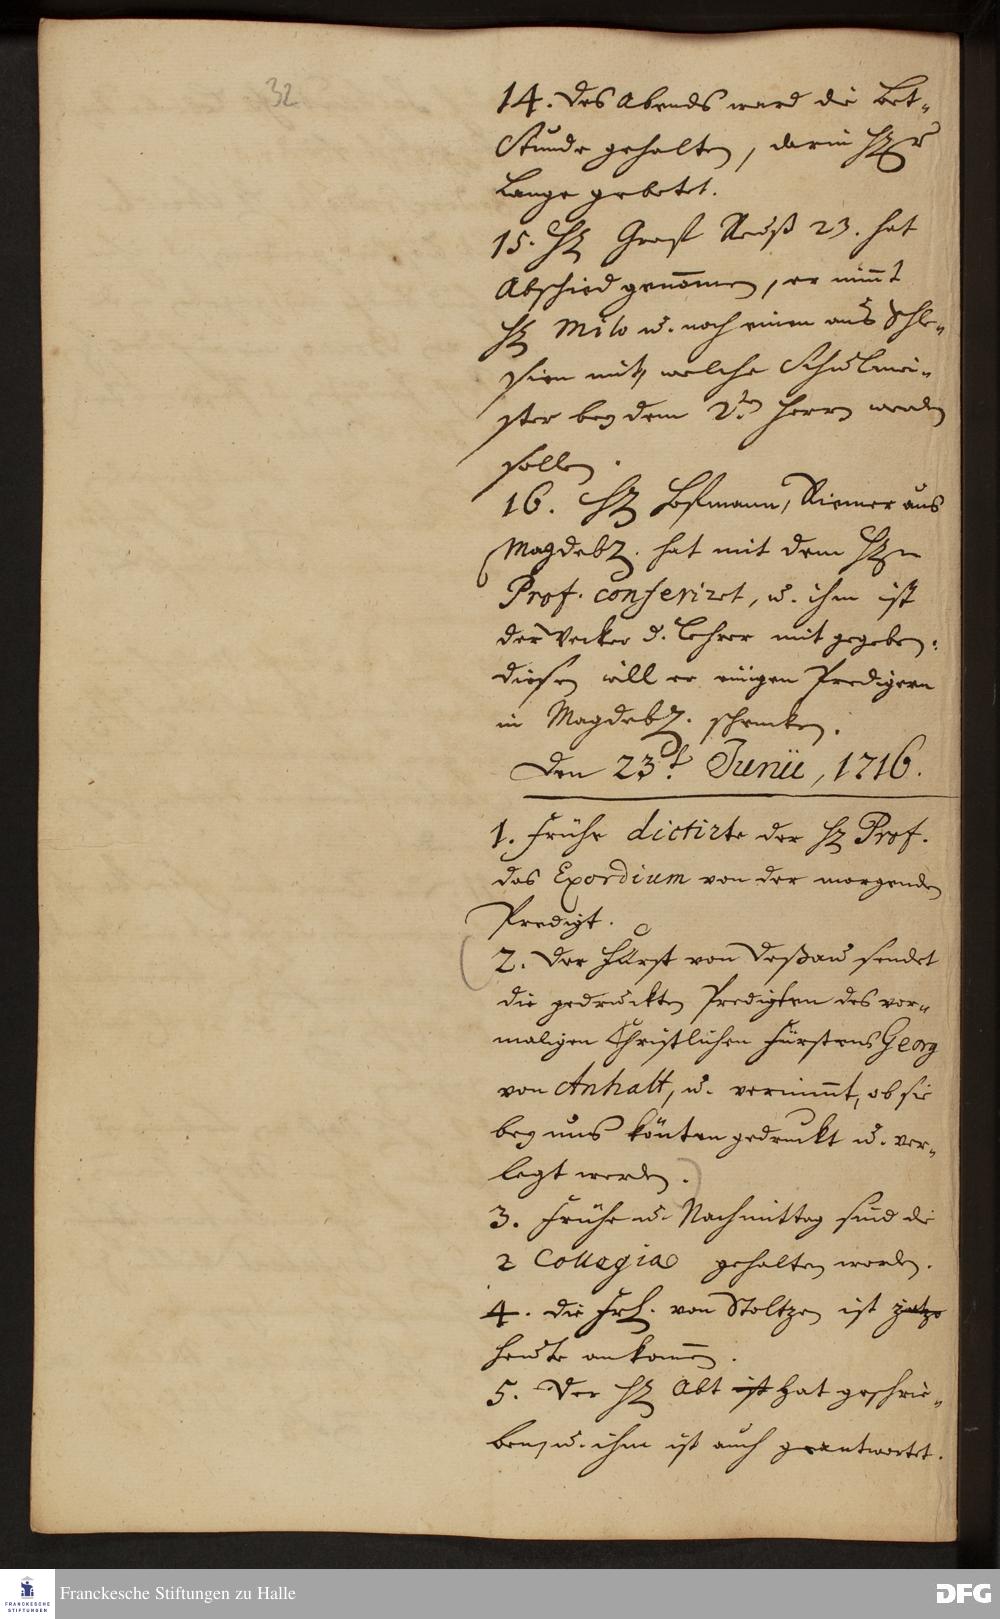 32
14. des Abends ward die Bet-
Stunde gehalten, darin H.
Lange gebetet.
15. H. Graf Reuß 23. hat
Abschied genom̅en, er nim̅t
H. Milo u. noch einen aus Schle-
sien mit, welche Schulmei-
ster bey dem 2ten Herrn werden
sollen.
16. H. Riemer aus
Magdeb. hat mit dem H.
Prof. conferiret, u. ihm ist
der Wecker d. Lehrer mit gegeben:
diesen will er einigen Predigern
in Magdeb. schencken.
Den 23t. Junii, 1716.
1. Frühe dictirte der H. Prof.
das Exordium von der morgenden
Predigt.
2. Der Fürst von Deßau sendet
die gedruckten Predigten des vor-
maligen Christlichen Fürstens Georg
von Anhalt, u. vernim̅t, ob sie
bey uns könten gedruckt u. ver-
legt werden.
3. Frühe u. Nachmittag sind die
2 Collegia gehalten worden.
4. die Frl. von Stoltzen ist
heute ankom̅en.
5. Der H. Abt ist hat geschrie-
ben, u. ihm ist auch geantwortet.
FRANCKESCHE
STIFTUNGEN
Franckesche Stiftungen zu Halle
DFG